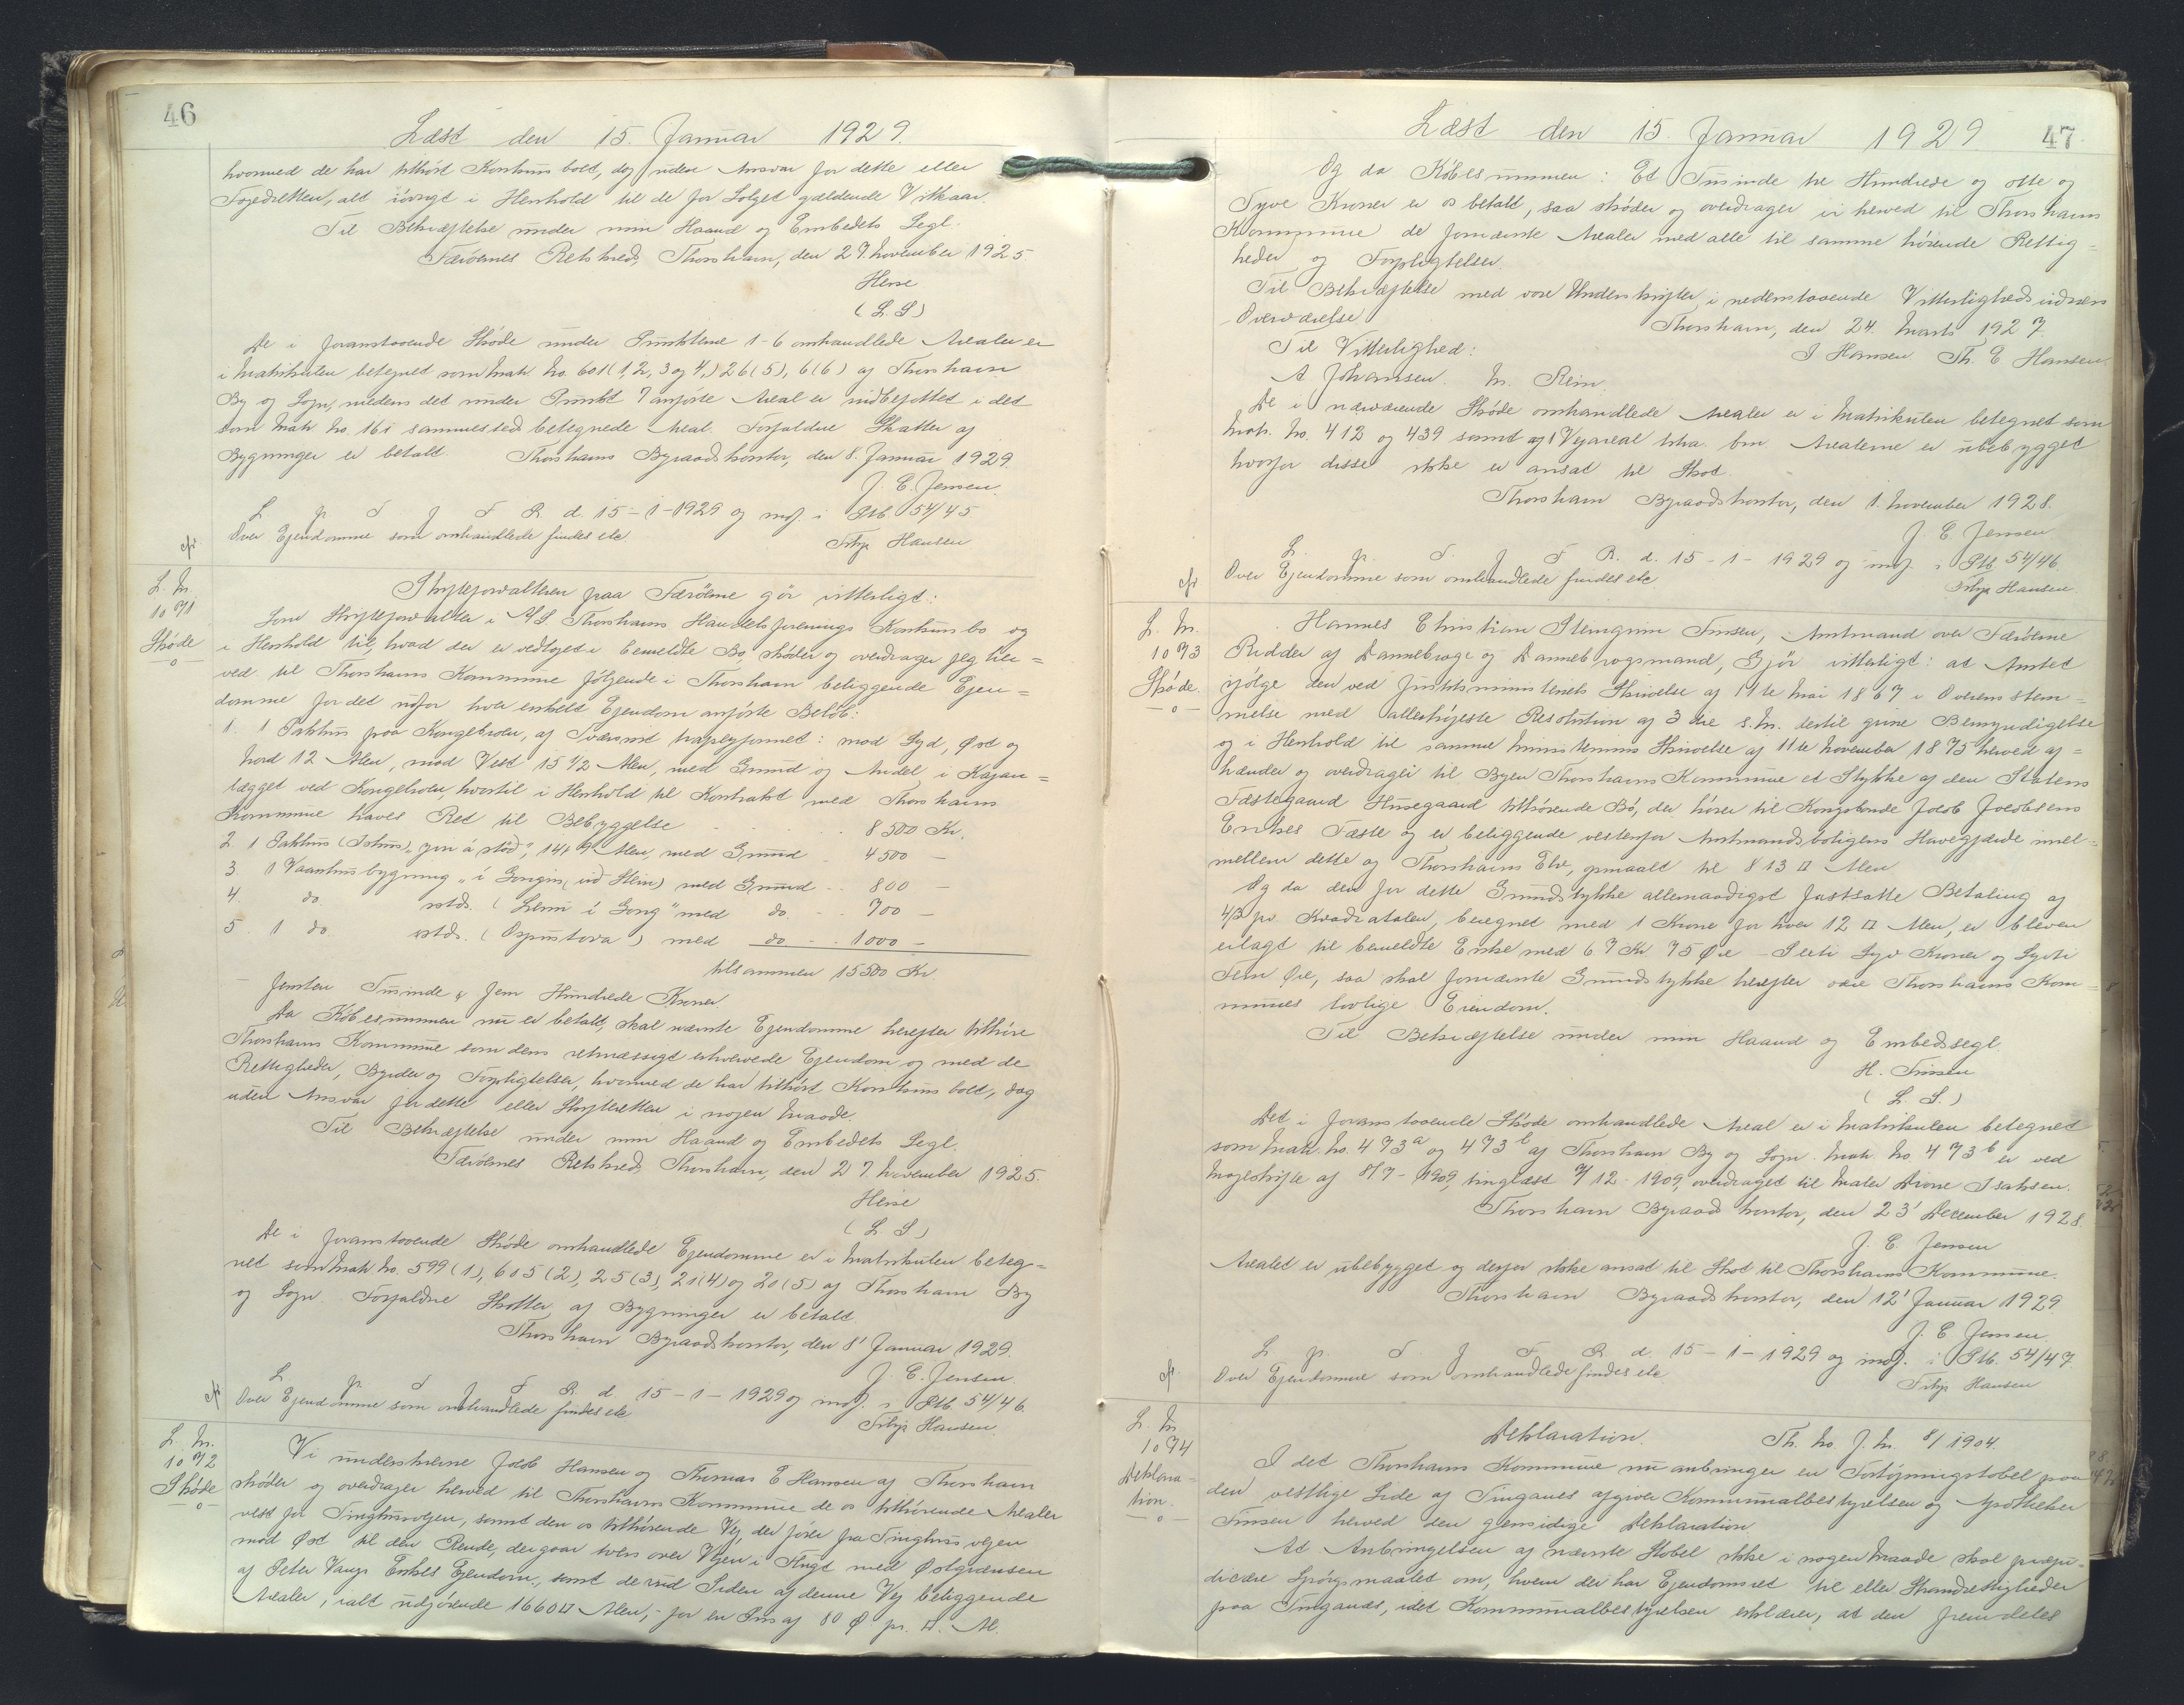 46
Læst den 15. Januar 1929.
hvormed de har tilhørt Konkursboet, dog uden Ansvar for dette eller
Fogedretten, alt iøvrigt i Henhold til de for Salget gældende Vilkaar.
Til Bekræftelse under min Haand og Embedets Segl.
Færøernes Retskreds, Thorshavn, den 27. November 1925
(L. S)
De i foranstaaende Skøde under Punkterne 1-6 omhandlede Arealer er
i Matrikulen betegnet som Matr. No. 601 (1, 2, 3 og 4,) 26 (5), 6 (6) af Thorshavn
By og Sogn, medens det under Punkt 7 anførte Areal er indbefattet i det
som Matr. No. 16i sammesteds betegnede Areal. Forfaldne Skatter af
Bygninger er betalt. Thorshavns Byraadskontor, den 8. Januar 1929.
J. E. Jensen.
L p T f F R. d. 15-1-1929 og indf. i Ptb. 54/45
Over Ejendomme som omhandlede findes etc
Filip Hansen
L. No.
1071
Skøde
Skifteforvalteren paa Færøerne gør vitterligt:
Som Skifteforvalter i A/S Thorshavns Handelsforenings Konkursbo og
i Henhold til, hvad der er vedtaget i bemeldte Bo, skøder og overdrager jeg her=
ved til Thorshavns Kommune følgende i Thorshavn beliggende Ejen=
domme for det udfor hver enkelt Ejendom anførte Beløb:
1. 1 Pakhus paa Kongebroen, af Tværsnit trapezformet: mod Syd, Øst og
Nord 12 Alen, mod Vest 15 1/2 Alen, med Grund og Andel i Kajan=
lægget ved Kongebroen, hvortil i Henhold til Kontrakt med Thorshavns
Kommune haves Ret til Bebyggelse . . . 8500 Kr.
2. 1 Pakhus (Ishus) „yvir á støð", 14 x 9 Alen, med Grund . 4500 —
3. 1 Vaanhusbygning „í Gongin, uð Stein) med Grund . . 800 —
4. do. sstds. (Lemi í Gong" med do. . . 700 —
5. 1 do. sstds. (Ospustova) med do . . 1000 —
tilsammen 15500 Kr
femten Tusinde & fem Hundrede Kroner
Da Købesummen nu er betalt, skal nævnte Ejendomme herefter tilhøre
Thorshavns Kommune som dens retmæssigt erhvervede Ejendom og med de
Rettigheder, Byrder og Forpligtelser, hvormed de har tilhørt Konkursboet, dog
uden Ansvar for dette eller Skifteretten i nogen Maade.
Til Bekræftelse under min Haand og Embedets Segl.
Færøernes Retskreds Thorshavn, den 27. November 1925.
(L S)
De i foranstaaende Skøde omhandlede Ejendomme er i Matrikulen beteg=
net som Matr. No. 599 (1), 605 (2), 25 (3), 21 (4) og 20 (5) af Thorshavn By
og Sogn. Forfaldne Skatter af Bygninger er betalt.
Thorshavn Byraadskontor, den 8' Januar 1929.
J. E. Jensen.
L p T f F R. d. 15-1-1929 og indf. i Ptb. 54/46.
Over Ejendomme som omhandlede findes etc
Filip Hansen.
L. No.
1072
Skøde
Vi underskrevne Jacob Hansen og Thomas E Hansen af Thorshavn
skøder og overdrager herved til Thorshavns Kommune de os tilhørende Arealer
vest for Tinghusvejen, samt den os tilhørende Vej, der fører fra Tinghusvejen
mod Øst til den Rende, der gaar tvers over Vejen i Flugt med Østgrænsen
af Peter Vangs Enkes Ejendom, samt de ved Siden af denne Vej beliggende
Arealer, ialt udgjørende 1660 □ Alen, for en Pris af 80 Ø pr. □ Al.
Læst den 15. Januar 1929. 47
Og da Købesummen: Et Tusinde tre Hundrede og otte og
Tyve Kroner er os betalt, saa skøder og overdrager vi herved til Thorshavns
Kommune de fornævnte Arealer med alle til samme hørende Rettig=
heder og Forpligtelser.
Til Bekræftelse med vore Underskrifter, i nedenstaaende Vitterlighedsvidners
Overværelse.
Thorshavn, den 24. Marts 1927
Til Vitterlighed:
J Hansen Th. E Hansen.
A Johansen. M. Rein.
De i nærværende Skøde omhandlede Arealer er i Matrikulen betegnet som
Matr. No. 412 og 439 samt af Vejareal tvha. bm. Arealerne er ubebygget
hvorfor disse ikke er ansat til Skat.
Thorshavn Byraadskontor, den 1. November 1928.
J. E. Jensen
L. p. T. f F R. d. 15-1-1929 og indf. i Ptb. 54/46.
Over Ejendomme som omhandlede findes etc.
Filip Hansen.
L. No.
1073
Skøde.
Hannes Christian Steingrim Finsen, Amtmand over Færøerne
Ridder af Dannebroge og Dannebrogsmand, Gjør vitterligt: at Amtet
ifølge den ved Justitsministeriets Skrivelse af 11te Mai 1867 i Overensstem=
melse med allerhøjeste Resolution af 3die s. M. dertil givne Bemyndigelse
og i Henhold til samme Ministeriums Skrivelse af 11te November 1875 herved af=
hænder og overdrager til Byen Thorshavns Kommune et Stykke af den Statens
Fæstegaard Husegaard tilhørende Bø, der hører til Kongsbonde Jacob Jacobsens
Enkes Fæste og er beliggende vestenfor Amtmandsboligens Havegjærde imel=
mellem dette og Thorshavns Elv, opmaalt til 813 □ Alen.
Og da den for dette Grundstykke allernaadigst fastsatte Betaling af
4 β pr. Kvadratalen, beregnet med 1 Krone for hver 12 □ Alen, er bleven
erlagt til bemeldte Enke med 67 Kr 75 Øre – Seeti Syv Kroner og Syvti
Fem Øre, saa skal fornævnte Grundstykke herefter være Thorshavns Kom=
munes lovlige Eiendom.
Til Bekræftelse under min Haand og Embedssegl
H. Finsen
(L. S.)
Det i foranstaaende Skøde omhandlede Areal er i Matrikulen betegnet
som Matr. No. 473a og 473b af Thorshavn By og Sogn. Matr. No. 473b er ved
Mageskifte af 8/7-1909, tinglæst 7/12-1909, overdraget til Maler Dione Isaksen.
Thorshavn Byraadskontor, den 23' December 1928.
J. E. Jensen
Arealet er ubebygget og derfor ikke ansat til Skat til Thorshavns Kommune.
Thorshavn Byraadskontor, den 12' Januar 1929.
J. E Jensen.
L p. T f F R d 15-1-1929 og indf. i Ptb. 54/47.
Over Ejendomme som omhandlede findes etc
Filip Hansen
L. No
1074
Deklara=
tion.
Deklaration. Th. No. J. No. 8/1904.
I det Thorshavns Kommune nu anbringer en Fortøjningstobel paa
den vestlige Side af Tinganes afgiver Kommunalbestyrelsen og Apotheker
Finsen herved den gensidige Deklaration
At Anbringelsen af nævnte Stobel ikke i nogen Maade skal præju=
dicere Spørgsmaalet om, hvem der har Ejendomsret til eller Strandrettigheder
paa Tinganes, idet Kommunalbestyrelsen erklærer, at den fremdeles